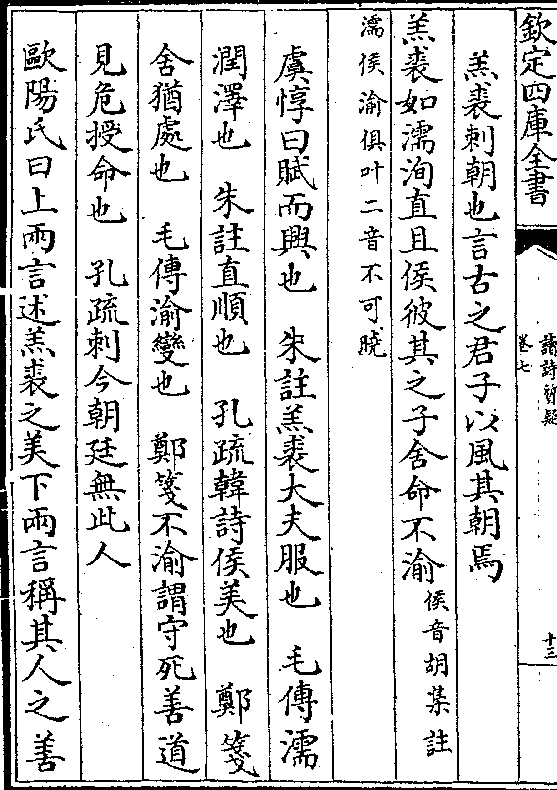 欽定四庫全書
讀詩質疑
卷七
十三
羔裘刺朝也言古之君子以風其朝焉
羔裘如濡洵直且侯彼其之子舍命不渝侯音胡某註
濡侯渝俱叶二音不可曉
虞惇曰賦而興也　朱註羔裘大夫服也　毛傳濡
潤澤也　朱註直順也　孔疏韓詩侯美也　鄭箋
舍猶處也　毛傳渝變也　鄭箋不渝謂守死善道
見危授命也　孔疏刺今朝廷無此人
歐陽氏曰上兩言述羔裘之美下兩言稱其人之善